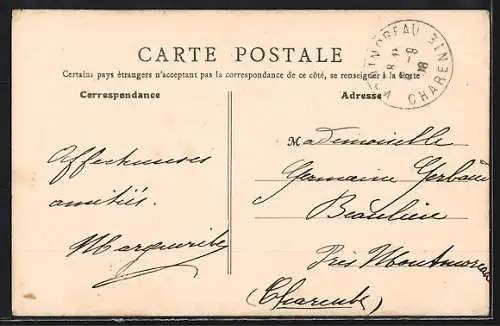 CARTE POSTALE
Certains pays étrangers n'acceptant pas la correspondance de ce côté, se renseigner à la Poste
Correspondance
Adresse
Affectueuses
amitiés.
Marguerite
Mademoiselle
Germaine
Beaulieu
Près Montmoreau
(Charente)